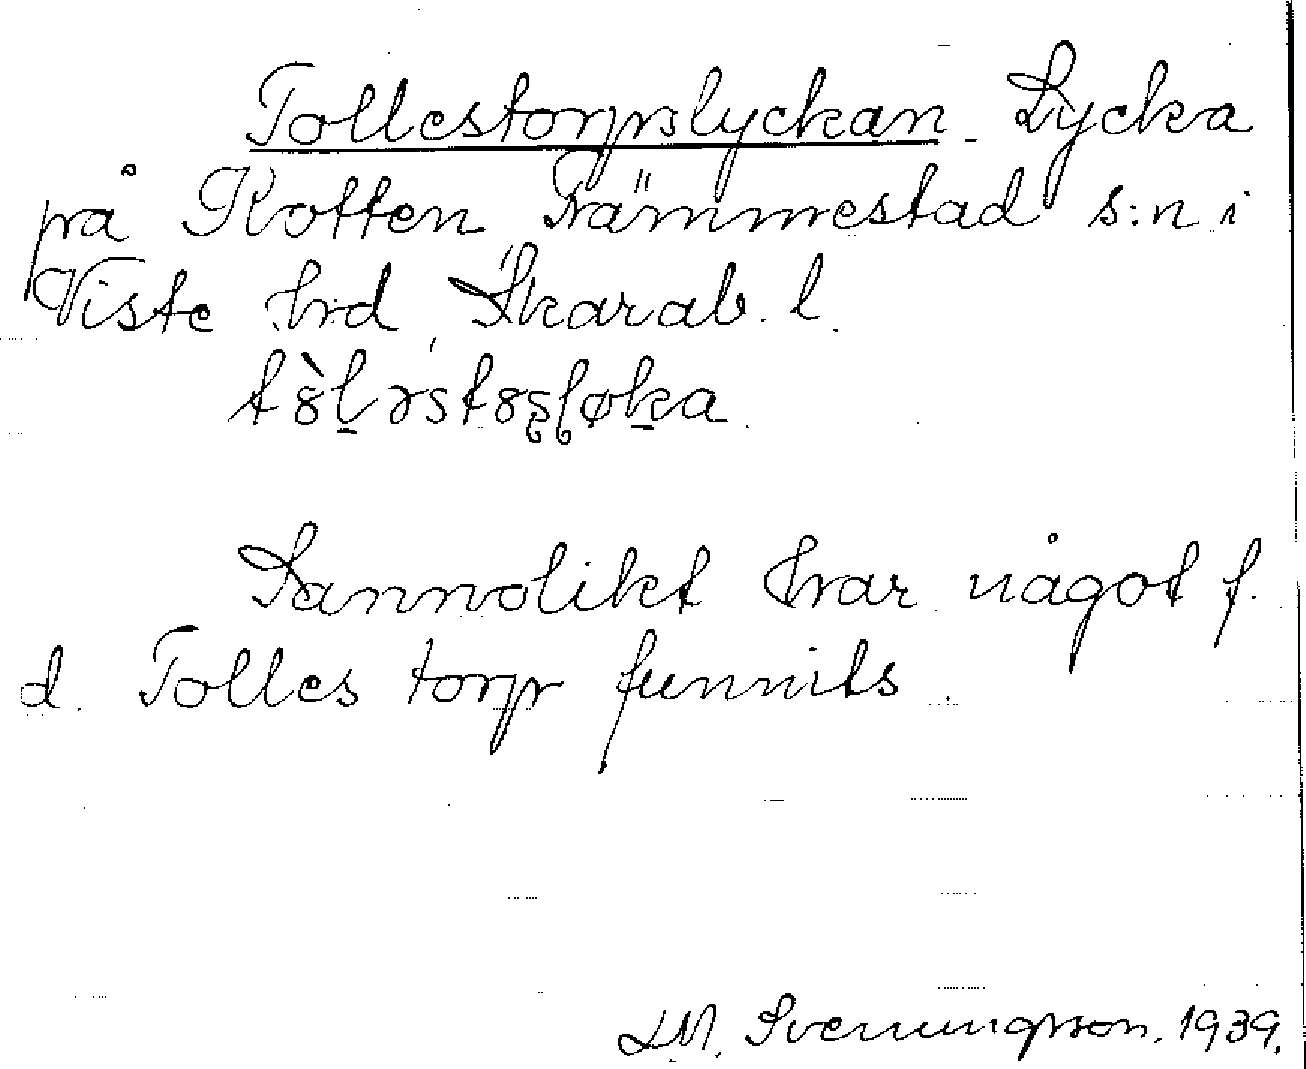 Tollestorpslyckan. Lycka
på Kotten Främmestad s:n i
Viste hrd, Skarab. l.
tȣ̀l̠əstȣşļøk̠a
Sannolikt har något f.
d. Tolles torp funnits.
LM. Svenungsson. 1939.